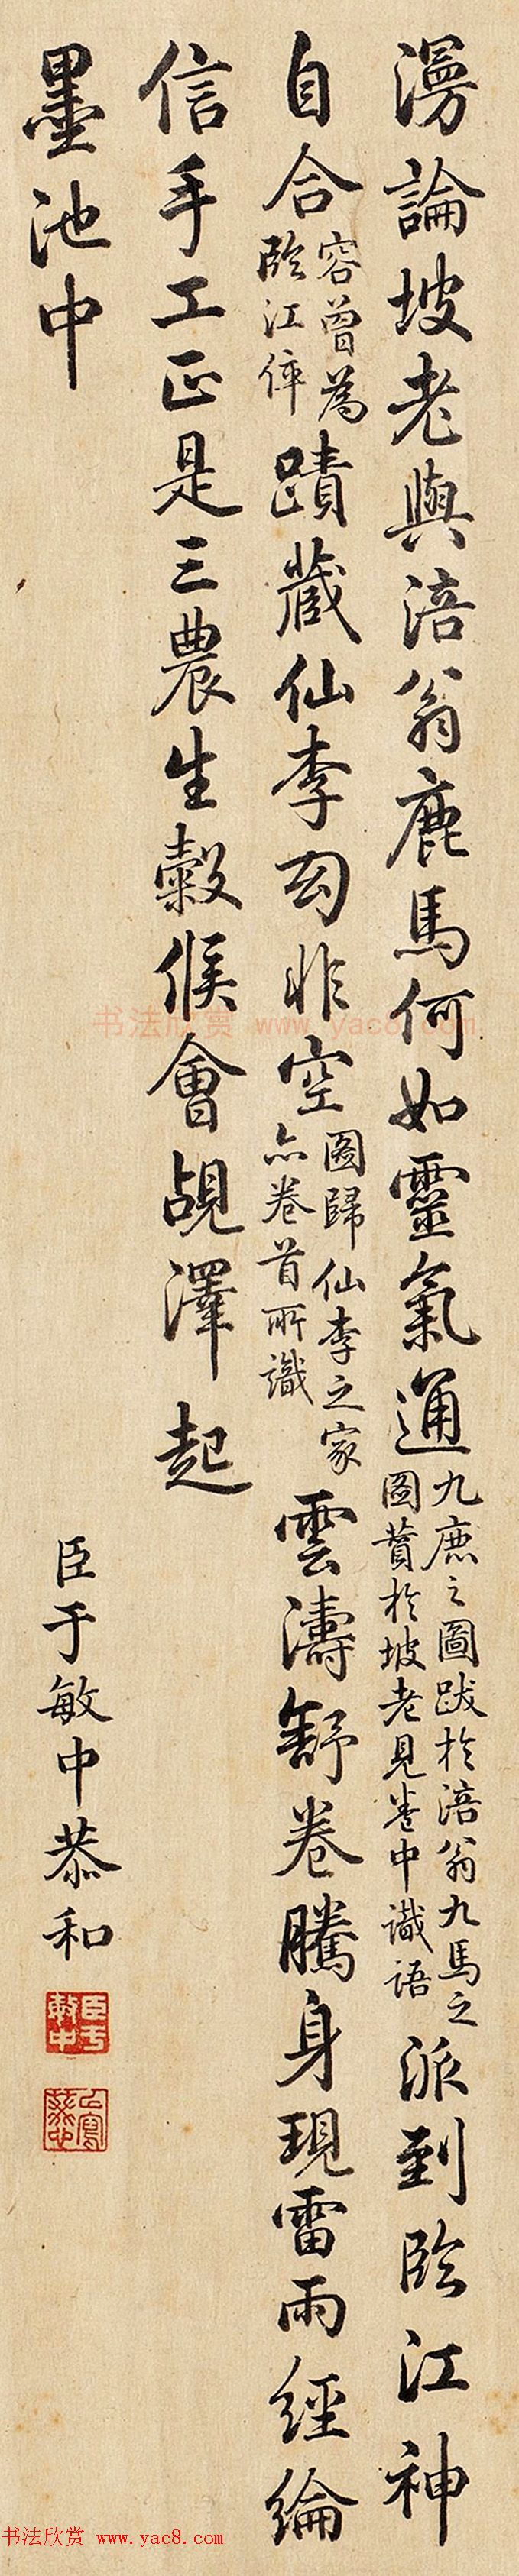 漫論坡老與涪翁鹿馬何如靈氣通九鹿之圖跋於涪翁九馬之圖贊於坡老見卷中識語派到臨江神
自合容曾為臨江倅蹟藏仙李句非空圖歸仙李之家亦卷首所識雲濤舒卷騰身現雷雨經綸
信手工正是三農生穀候會覘澤起
墨池中
臣于敏中恭和
臣于敏中
书法欣赏 www.yac8.com
书法欣赏 www.yac8.com